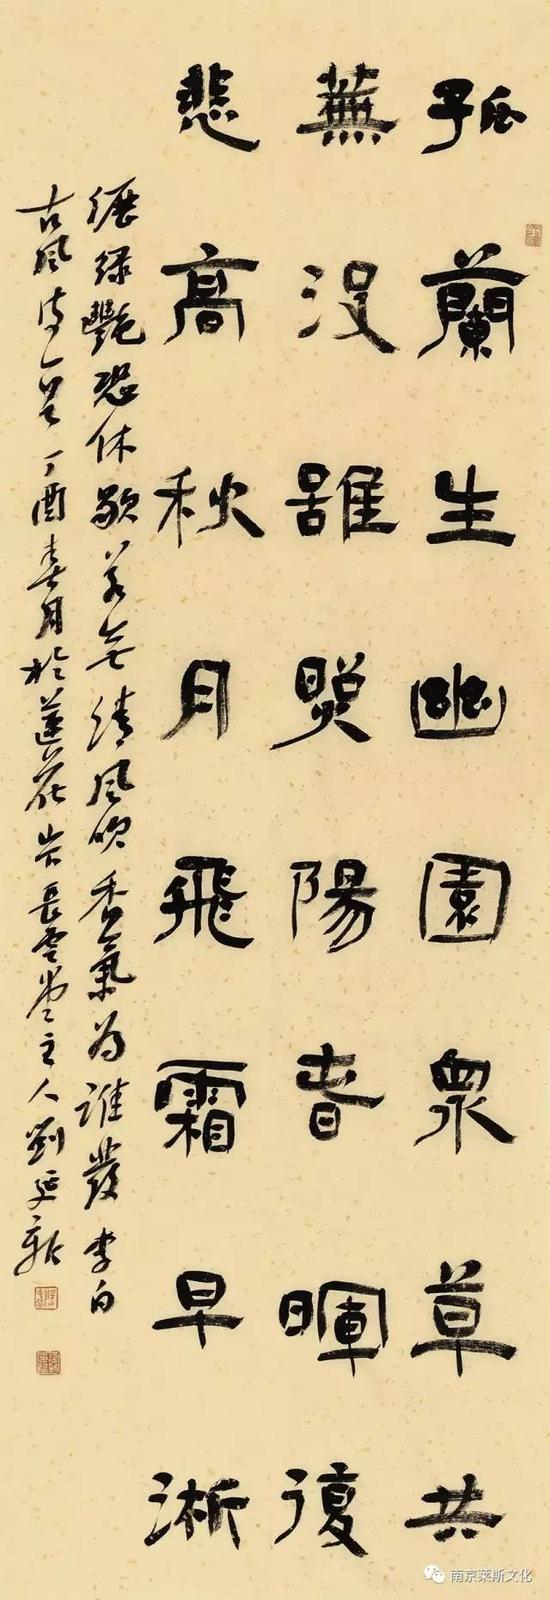 孤蘭生幽園衆草共
蕪没雖照陽春暉復
悲高秋月飛霜早淅
瀝緑艷恐休歇若無清風吹香氣為誰發李白
古風詩一首丁酉春月於蓮花岩長雲堂主人劉延
南京莱斯文化